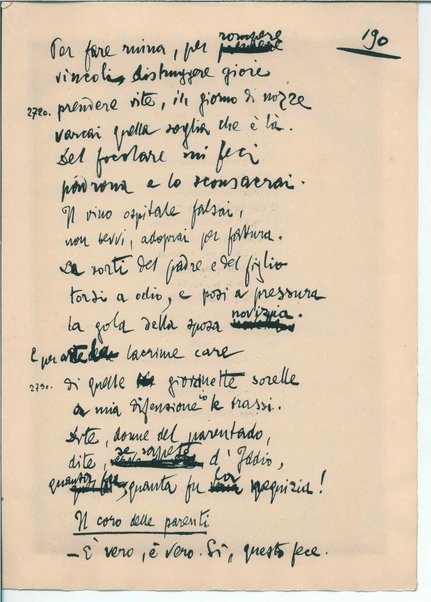 190
Per fare ruina, per rompere
vincoli, distruggere gioie
2720. prendere vite, il giorno di nozze
varcai quella soglia che è là.
Del focolare mi feci
padrona e lo sconsacrai.
Il vino ospitale falsai,
non bevvi, adoprai per fattura.
La sorti del padre e del figlio
torsi a odio, e posi a pressura
la gola della sposa novizia.
E per arte lacrime care
2730. di quelle giovinette sorelle
a mia difensione io le trassi.
Dite, donne del parentado,
dite, d'Iddio,
quanta fu nequizia!
Il coro delle parenti
– È vero, è vero. Sì, questo fece.